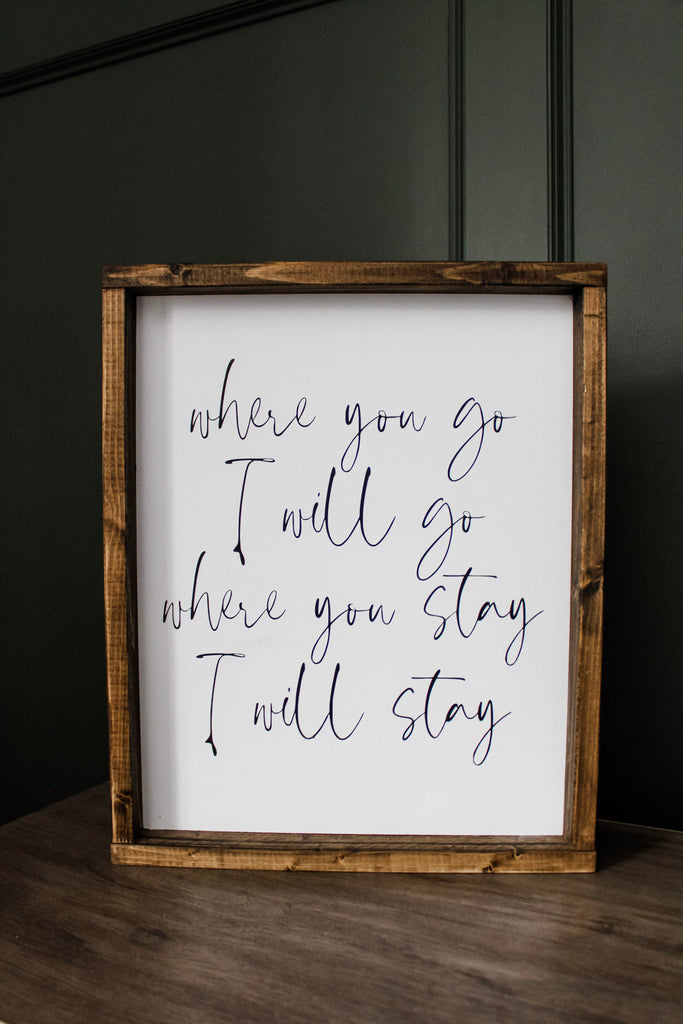 where you go
I will go
where you stay
I will stay